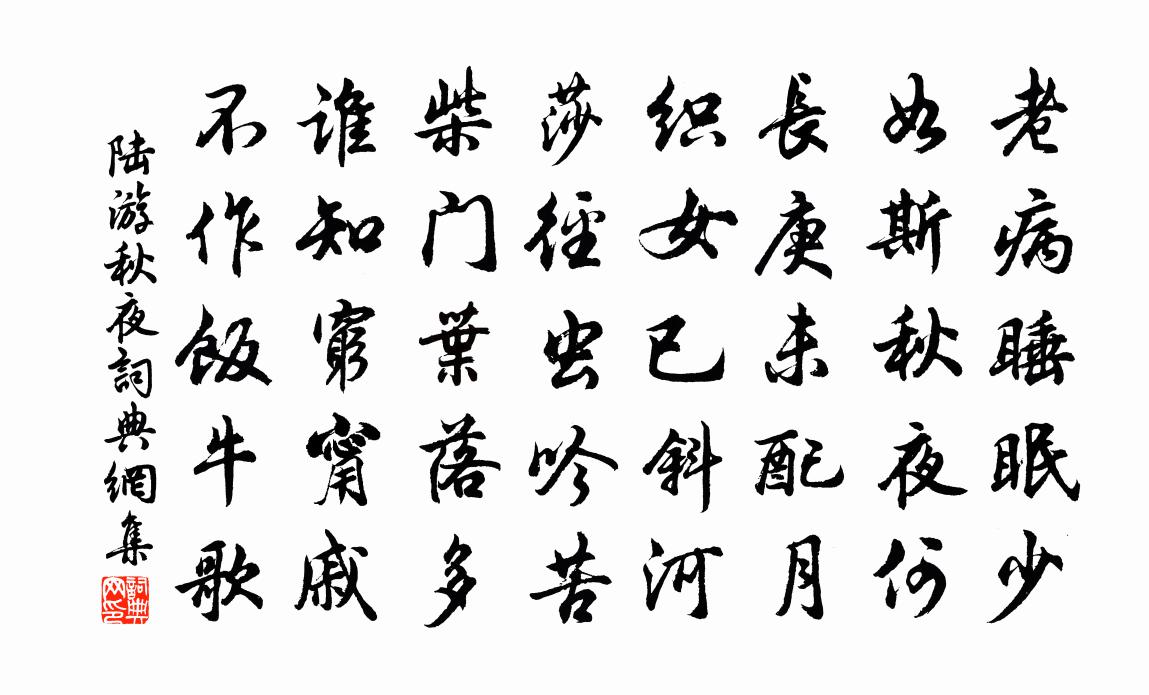 老病睡眠少
如斯秋夜何
長庚未配月
织女已斜河
莎徑虫吟苦
柴门葉落多
誰知窮甯戚
不作飯牛歌
陆游秋夜詞典網集
詞典网印